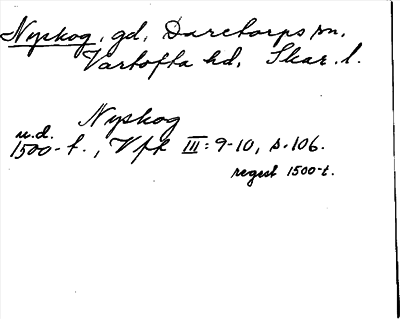 Nyskog, gd, Daretorps sn,
Vartofta hd, Skar. l.
Nyskog
u.d.
1500-t., Vfk III: 9-10, s. 106.
regest 1500-t.